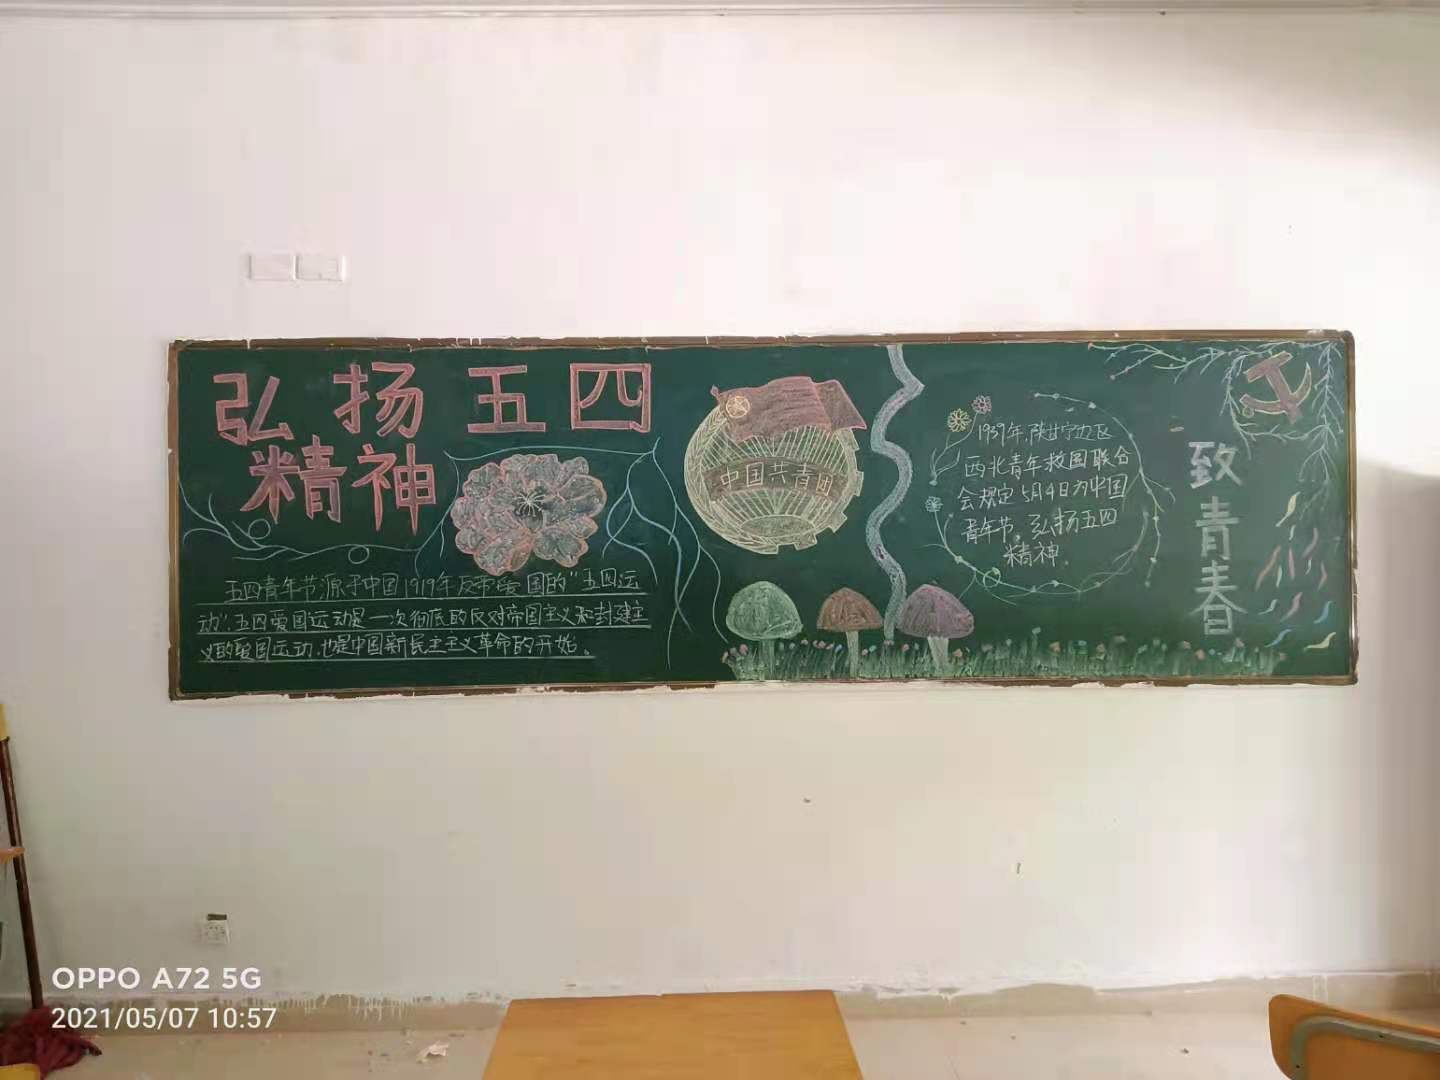 弘扬五四
精神
五四青年节源于中国1919年反帝爱国的"五四运
动",五四爱国运动是一次彻底的反对帝国主义和封建主
义的爱国运动,也是中国新民主主义革命的开始。
中国共青团
1939年,陕甘宁边区
西北青年救国联合
会规定5月4日为中国
青年节,弘扬五四
精神.
致青春
OPPO A72 5G
2021/05/07 10:57